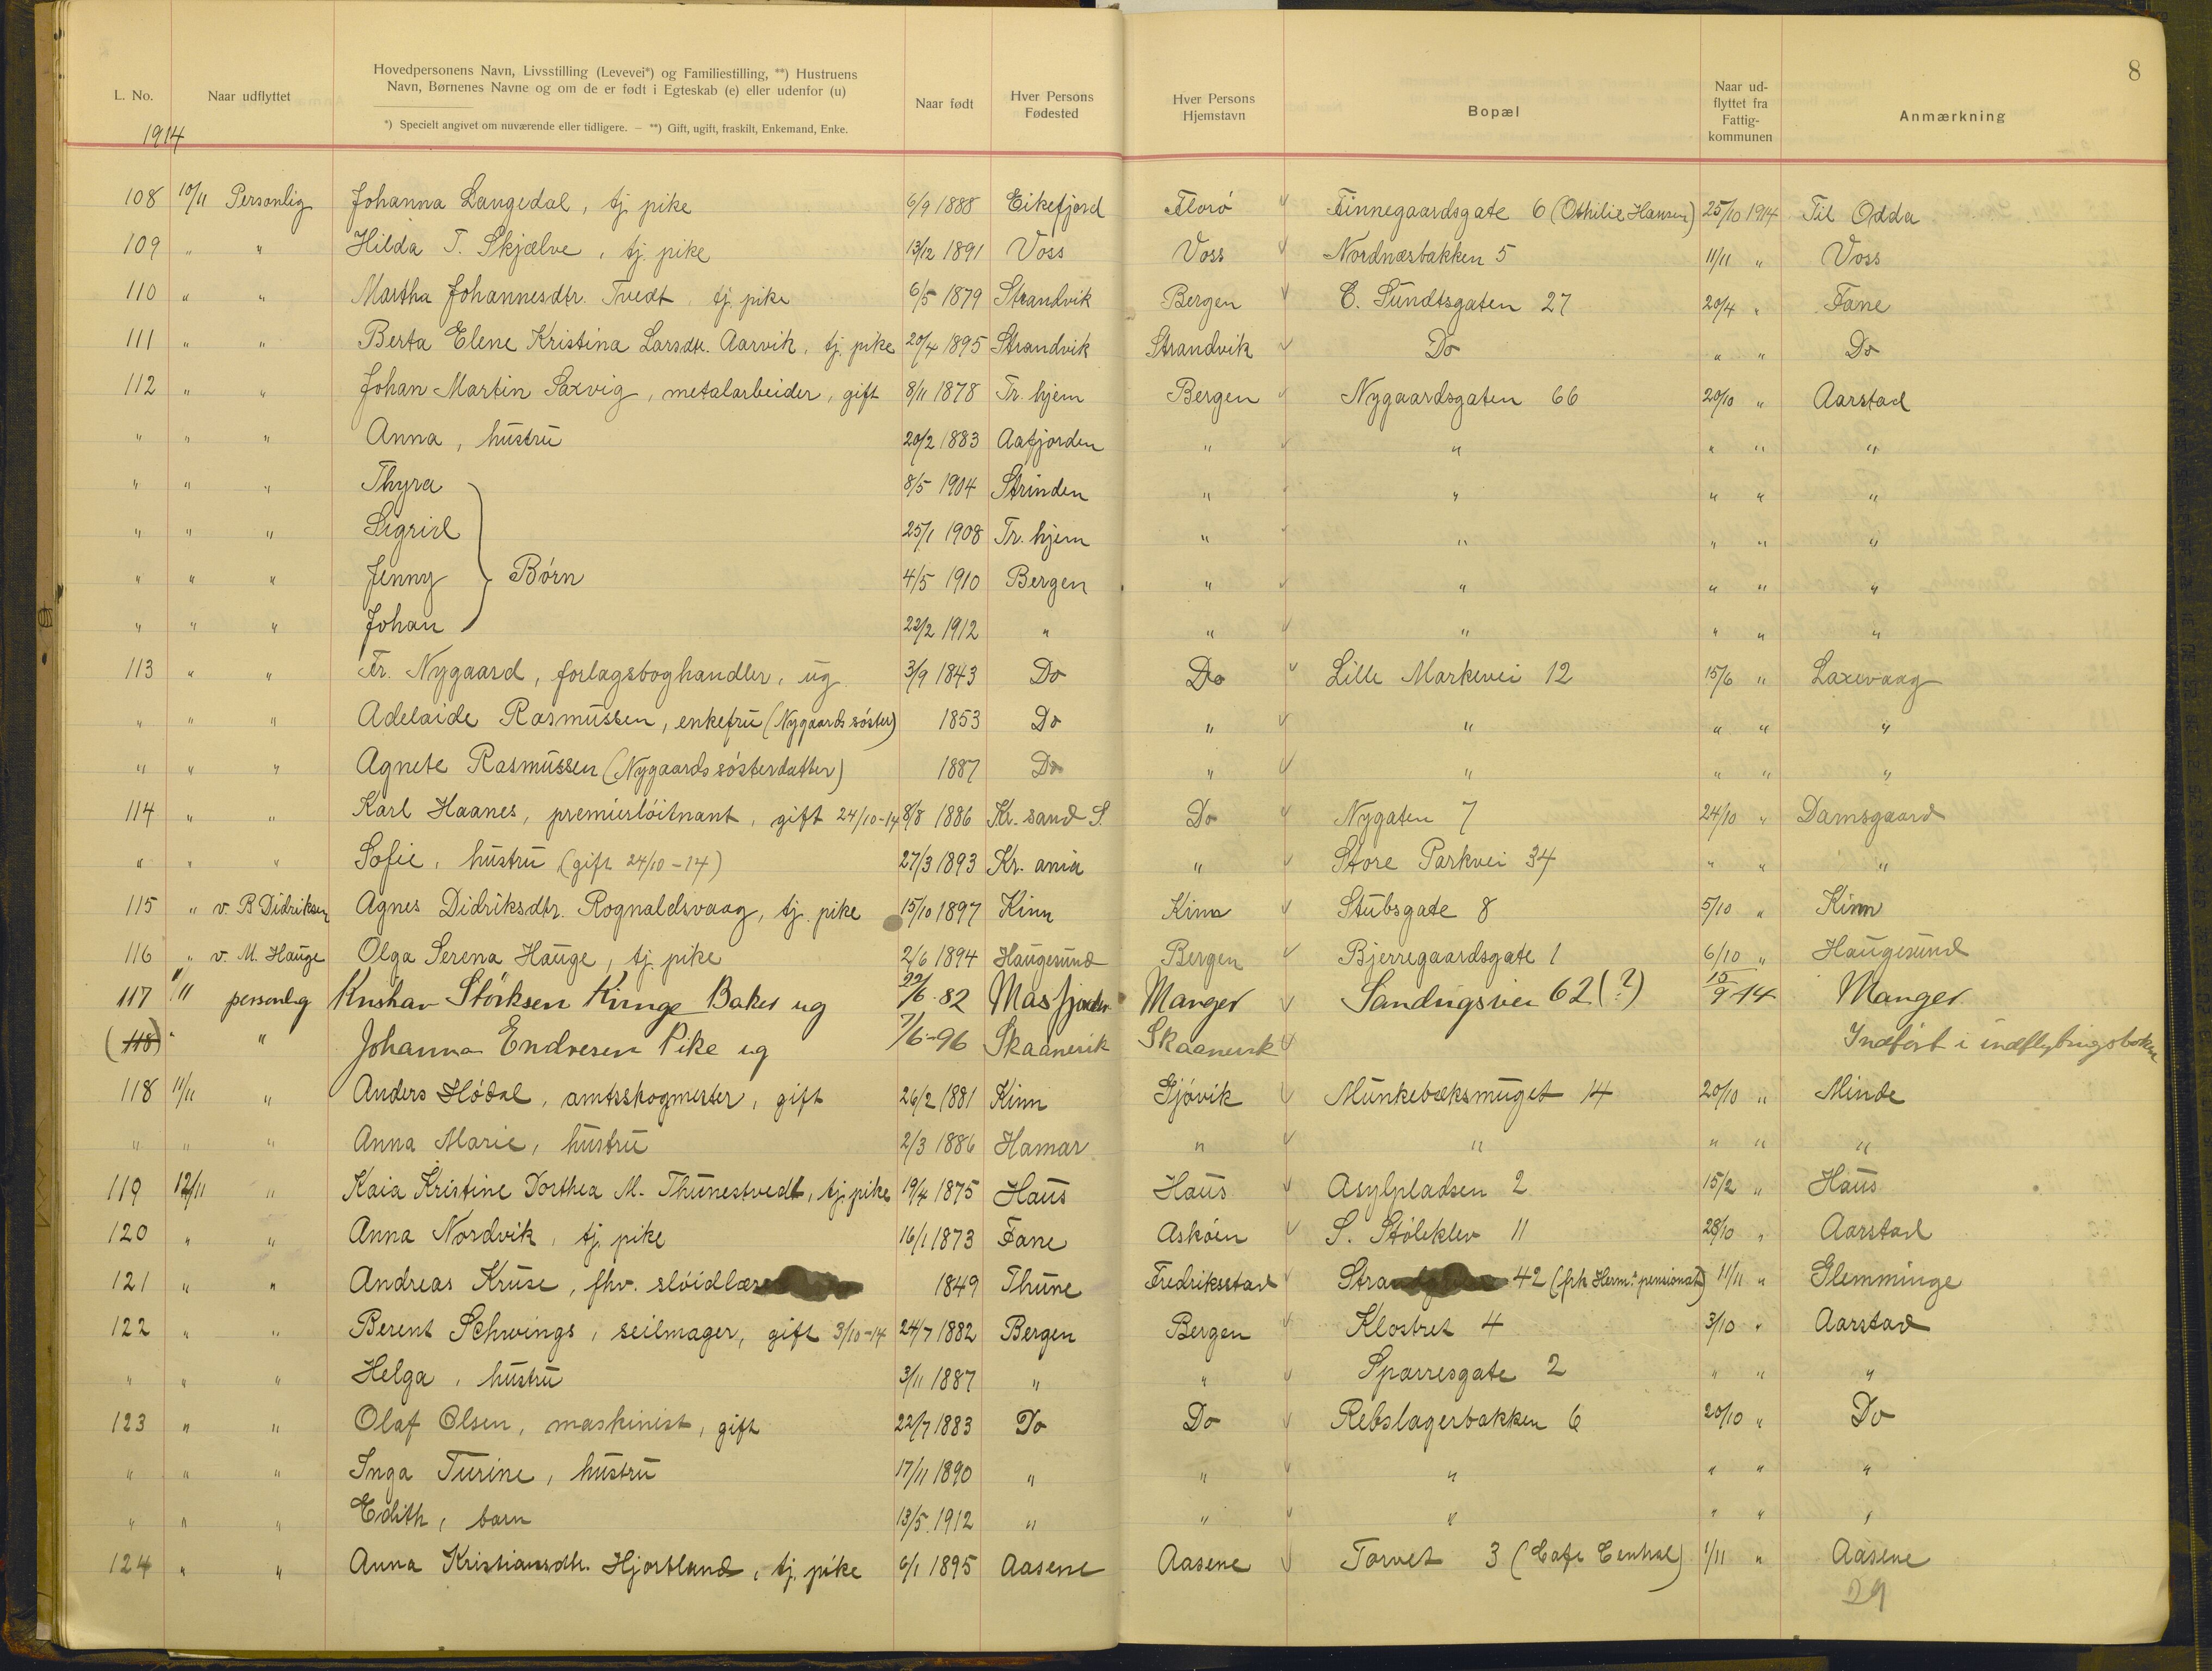 8
L. No. Naar udflyttet Hovedpersonens Navn, Livsstilling (Levevei*) og Familiestilling, **) Hustruens Navn, Børnenes Navne og om de er født i Egteskab (e) eller udenfor (u) Naar født Hver Persons Fødested Hver Persons Hjemstavn Bopæl Naar ud-flyttet fra Fattig-kommunen Anmærkning
*) Specielt angivet om nuværende eller tidligere. — **) Gift, ugift, fraskilt, Enkemand, Enke.
1914
108 10/11 Personlig Johanna Langedal, tj. pike 6/9 1888 Eikefjord Florö Finnegaardsgate 6 (Othilie Hansen) 25/10 1914 Til Odda
109 " " Hilda T. Skjælve, tj. pike 13/12 1891 Voss Voss Nordnæsbakken 5 11/11 " Voss
110 " " Martha Johannesdtr. Tvedt tj. pike 6/5 1879 Strandvik Bergen C. Sundtsgaten 27 20/4 " Fane
111 " " Berta Elene Kristina Larsdtr. Aarvik, tj. pike 20/4 1895 Strandvik Strandvik Do " " Do
112 " " Johan Martin Saxvig, metalarbeider, gift 8/11 1878 Tr. hjem Bergen Nygaardsgaten 66 20/10 " Aarstad
" " " Anna, hustru 20/2 1883 Aafjorden " " " " "
" " " Thyra 8/5 1904 Strinden " " " " "
" " " Sigrid 25/1 1908 Tr. hjem " " " " "
" " " Jenny } Börn 4/5 1910 Bergen " " " " "
" " " Johan 22/2 1912 " " " " " "
113 " " Fr. Nygaard, forlagsboghandler, ug. 3/9 1843 Do Do Lille Markevei 12 15/6 " Laxevaag
" " " Adelaide Rasmussen, enkefru (Nygaards söster) 1853 Do " " " " "
" " " Agnete Rasmussen (Nygaards sösterdatter) 1887 Do " " " " "
114 " " Karl Haanes, premierlöitnant, gift 24/10-14 8/8 1886 Kr. sand S. Do Nygaten 7 24/10 " Damsgaard
" " " Sofie, hustru (gift 24/10-14) 27/3 1893 Kr. ania " Store Parkvei 34 " " "
115 " v. B Didriksen Agnes Didriksdtr. Rognaldsvaag, tj. pike 15/10 1897 Kinn Kinn Stubsgate 8 5/10 " Kinn
116 " v. M. Hauge Olga Serena Hauge, tj. pike 2/6 1894 Haugesund Bergen Bjerregaardsgate 1 6/10 " Haugesund
117 " personlig Störksen Baker ug 22/6-82 Masfjorden Manger 62 (?) 15/9-14 Manger
(118) " " Johanna Endresen Pike ug 7/6-96 Skaanevik Skaanevik Indfört i indflytningsboken
118 11/11 " Anders Hödal, amtsskogmester, gift 26/2 1881 Kinn Gjövik Munkebæksmuget 14 20/10 " Minde
" " " Anna Marie, hustru 2/3 1886 Hamar " " " " "
119 12/11 " Kaia Kristine Dorthea M. Thunestvedt, tj. pike 19/4 1875 Haus Haus Asylpladsen 2 15/2 " Haus
120 " " Anna Nordvik, tj. pike 16/1 1873 Fane Asköen S. Stöleklev 11 28/10 " Aarstad
121 " " Andreas Kruse, fhv. slöidlær 1849 Thune Fredriksstad Stra 42 (frk Herm.s pensionat) 11/11 " Glemminge
122 " " Berent Schwings, seilmager, gift 3/10-14 24/7 1882 Bergen Bergen Klostret 4 3/10 " Aarstad
" " " Helga, hustru 3/11 1887 " " Sparresgate 2 " " "
123 " " Olaf Olsen, maskinist, gift 22/7 1883 Do Do Rebslagerbakken 6 20/10 " Do
" " " Inga Turine, hustru 17/11 1890 " " " " " "
" " " Edith, barn 13/5. 1912 " " " " " "
124 " " Anna Kristiansdtr. Hjortland, tj. pike 6/1 1895 Aasene Aasene Torvet 3 (Cafe Central) 1/11 " Aasene
29